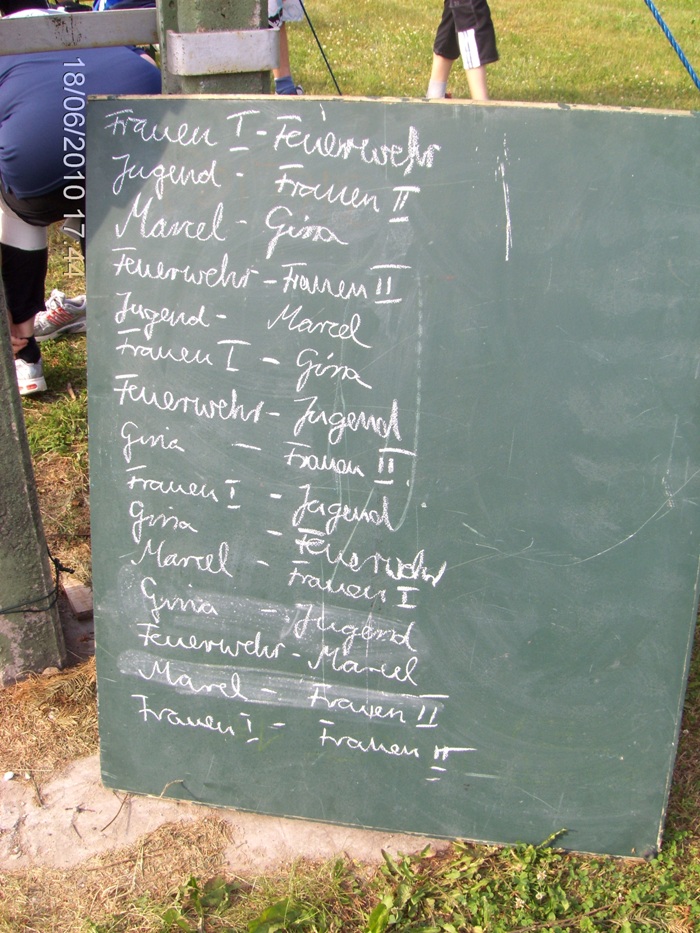 Frauen I - Feuerwehr
Jugend - Frauen II
Marcel - Gina
Feuerwehr - Frauen II
Jugend - Marcel
Frauen I - Gina
Feuerwehr - Jugend
Gina - Frauen II
Frauen I - Jugend
Gina - Feuerwehr
Marcel - Frauen I
Gina - Jugend
Feuerwehr - Marcel
Marcel - Frauen II
Frauen I - Frauen II
18/06/2010 17:44